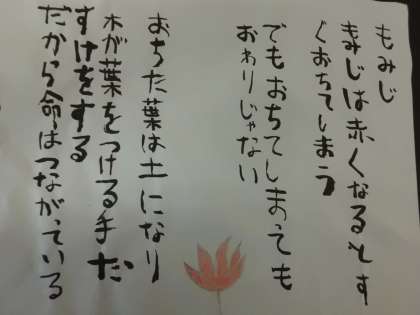 もみじ
もみじは赤くなるとす
ぐおちてしまう
でもおちてしまっても
おわりじゃない
おちた葉は土になり
木が葉をつける手だ
すけをする
だから命はつながっている